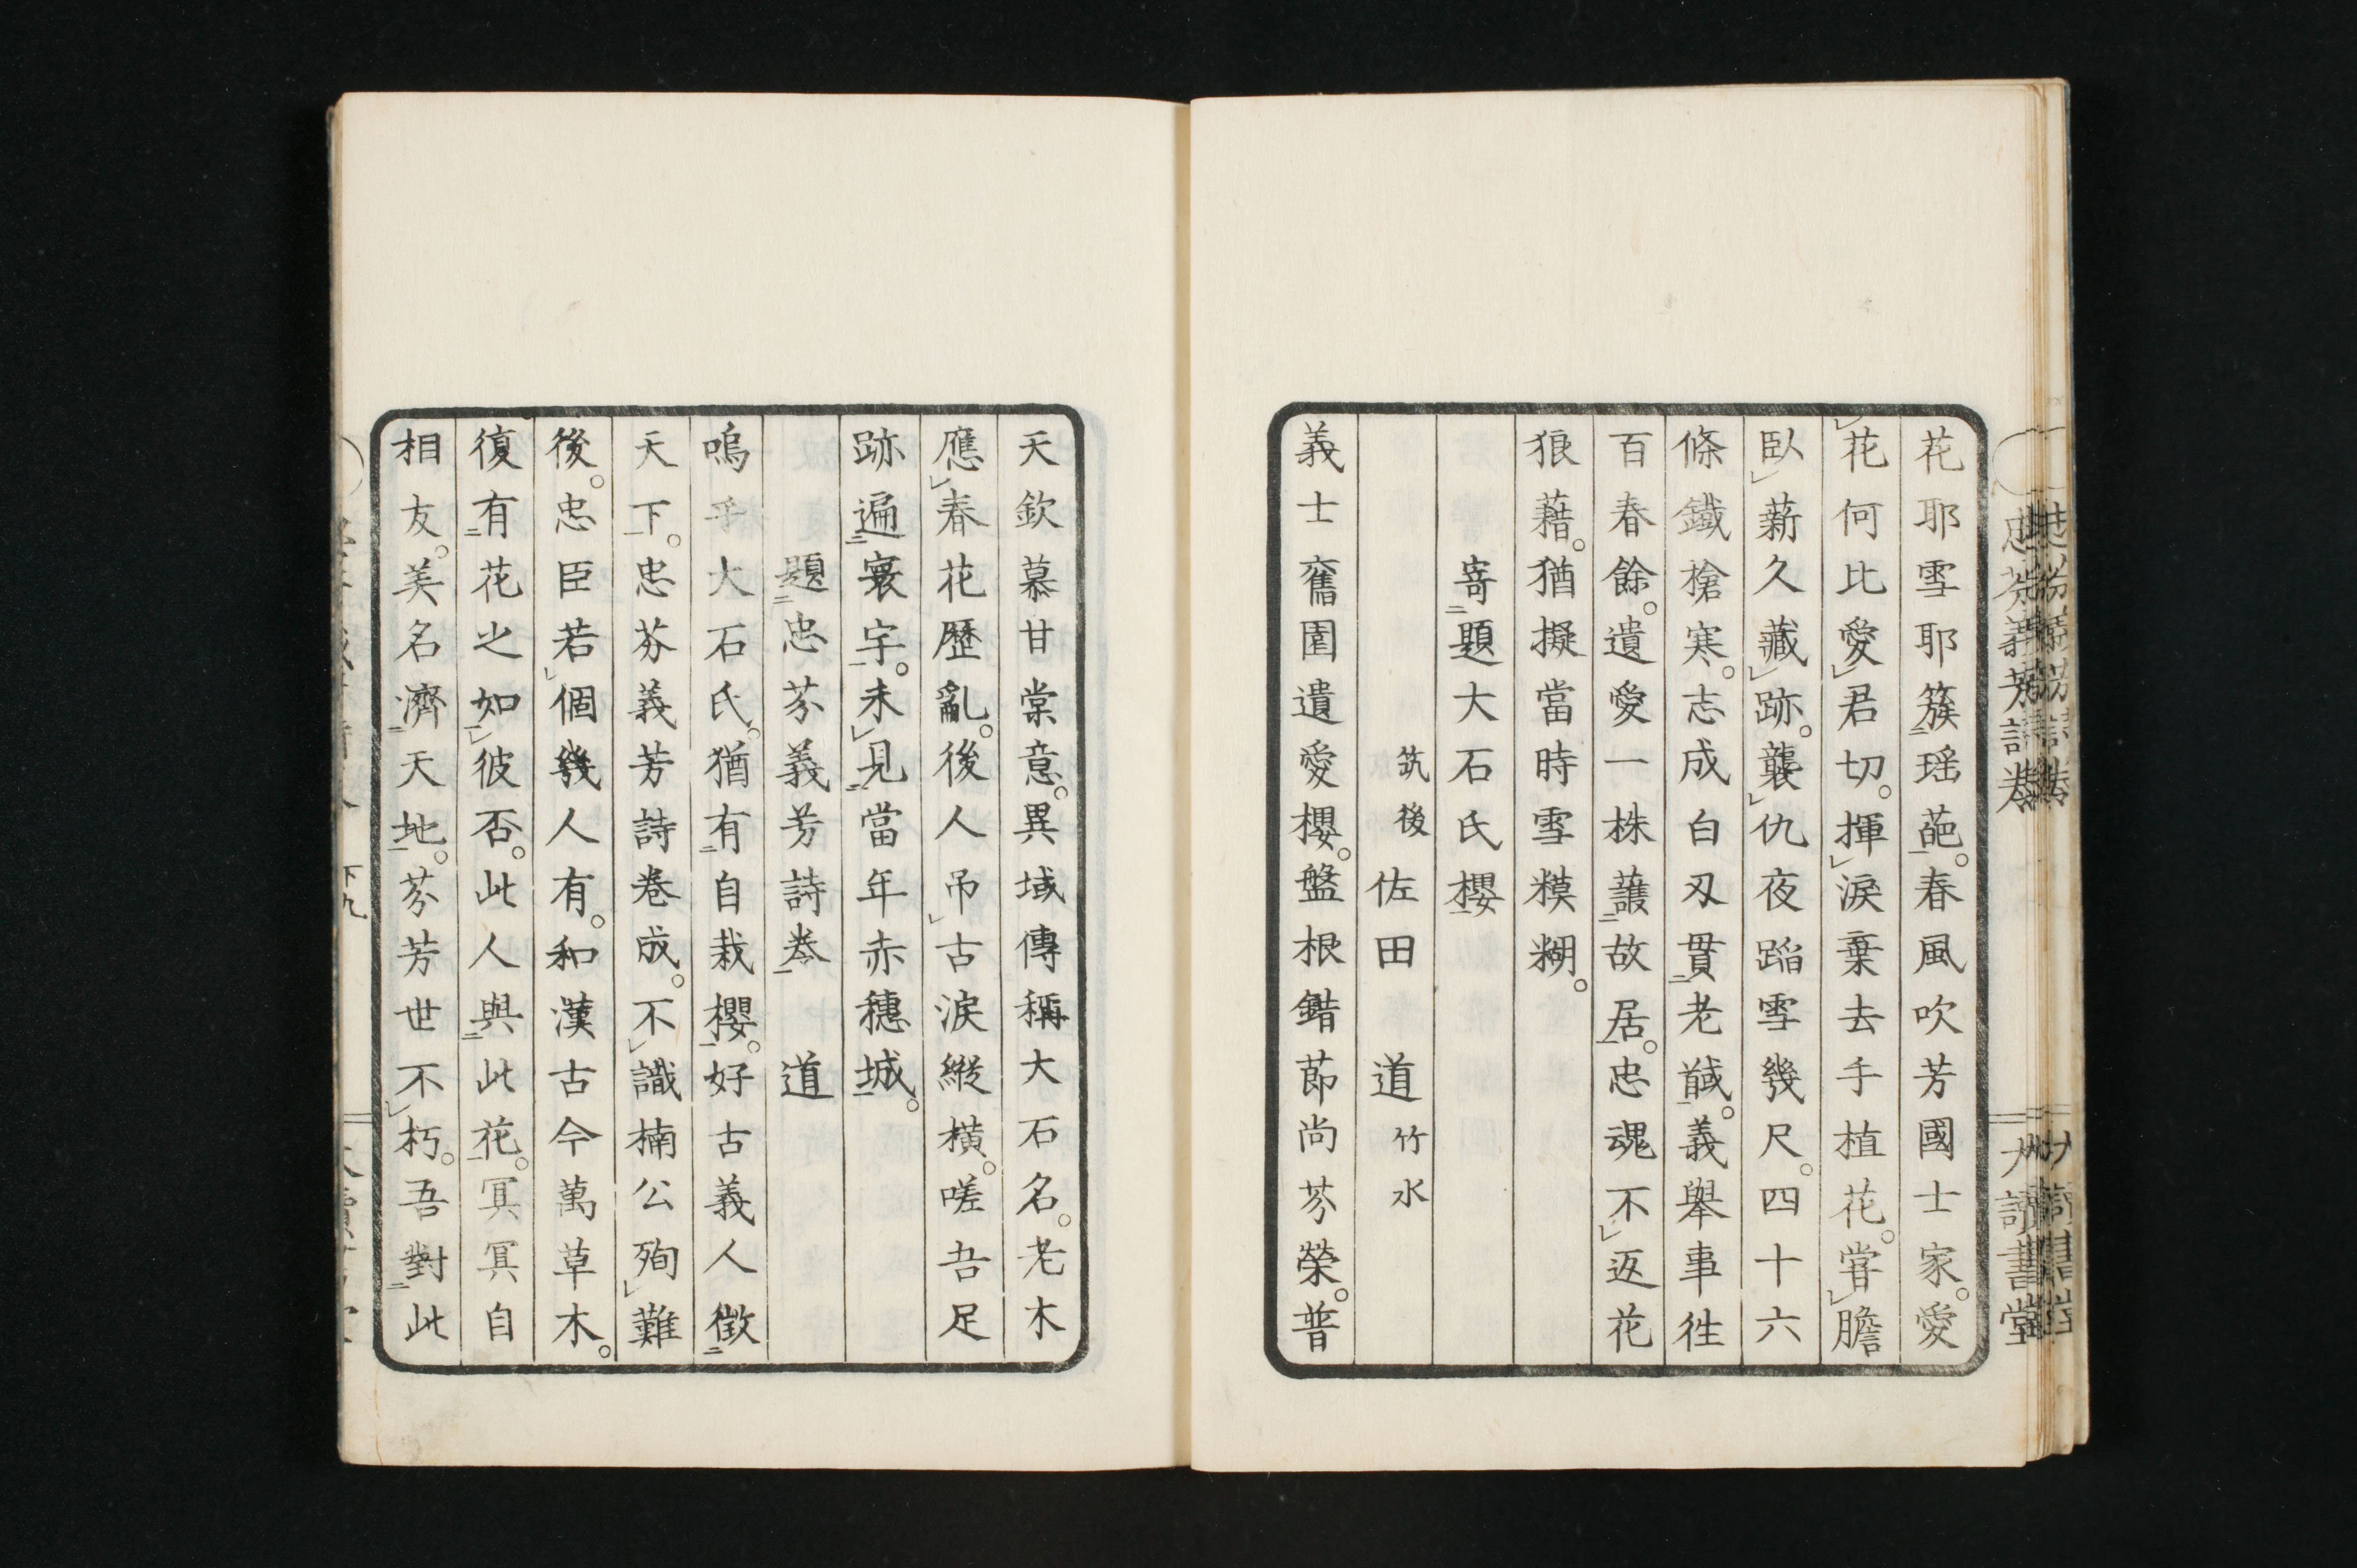 花耶雪耶簇瑶葩。春風吹芳國士家。愛
花何比愛君切。揮淚棄去手植花。嘗膽
臥薪久藏跡。襲仇夜蹈雪幾尺。四十六
條鐵槍寒。志成白刃貫老馘。義舉事徃
百春餘。遺愛一株護故居。忠魂不返花
狼藉。猶擬當時雪糢糊。
寄題大石氏櫻
筑後佐田 道竹水
義士舊園遺愛櫻。盤根錯節尚芬榮。普
天欽慕甘棠意。異域傳稱大石名。老木
應春花歷亂。後人吊古淚縱橫。嗟吾足
跡遍寰宇。未見當年赤穗城。
題忠芬義芳詩巻 道
嗚乎大石氏。猶有自栽櫻。好古義人徴
天下。忠芬義芳詩巻成。不識楠公殉難
後。忠臣若個幾人有。和漢古今萬草木。
復有花之如彼否。此人與此花。冥冥自
相友。美名濟天地。芬芳世不朽。吾對此
忠芬義芳詩巻
大讀書堂